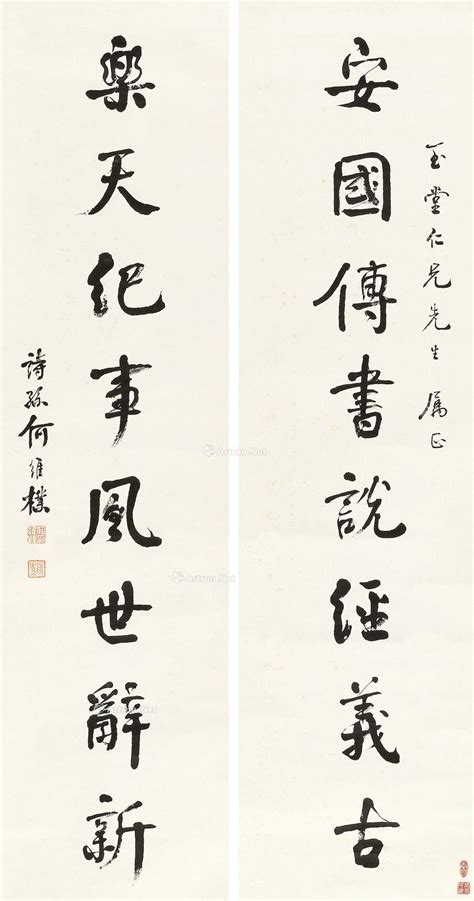 玉堂仁兄先生 属正
安國傳書說經義古
樂天紀事風世辭新
詩孫何維樸
Artron.Net
Artron.Net